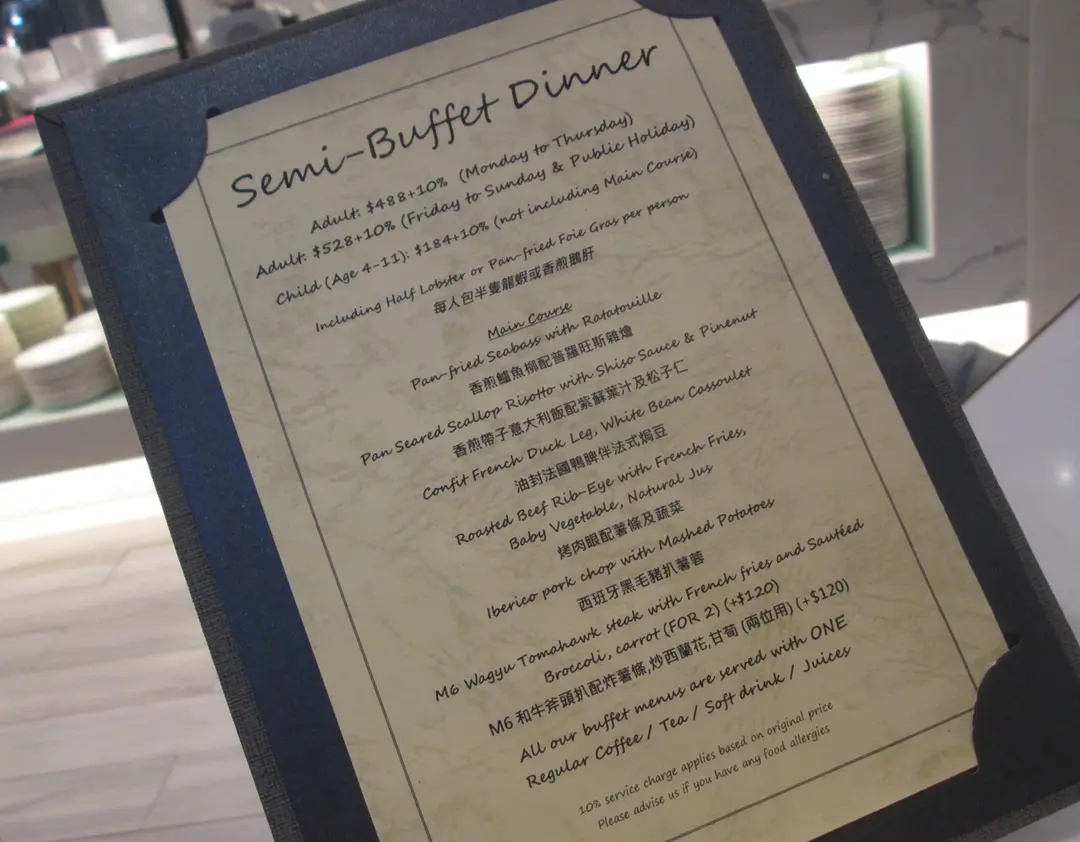 Semi-Buffet Dinner
Adult: $488+10% (Monday to Thursday)
Adult: $528+10% (Friday to Sunday & Public Holiday)
Child (Age 4-11): $184+10% (not including Main Course)
Including Half Lobster or Pan-fried Foie Gras per person
每人包半隻龍蝦或香煎鵝肝
Main Course
Pan-fried Seabass with Ratatouille
香煎鱸魚柳配普羅旺斯雜燴
Pan Seared Scallop Risotto with Shiso Sauce & Pinenut
香煎帶子意大利飯配紫蘇葉汁及松子仁
Confit French Duck Leg, White Bean Cassoulet
油封法國鴨脾伴法式焗豆
Roasted Beef Rib-Eye with French Fries,
Baby Vegetable, Natural Jus
烤肉眼配薯條及蔬菜
Iberico pork chop with Mashed Potatoes
西班牙黑毛豬扒薯蓉
M6 Wagyu Tomahawk steak with French fries and Sautéed
Broccoli, carrot (FOR 2) (+$120)
M6 和牛斧頭扒配炸薯條,炒西蘭花,甘荀 (兩位用) (+$120)
All our buffet menus are served with ONE
Regular Coffee / Tea / Soft drink / Juices
10% service charge applies based on original price
Please advise us if you have any food allergies